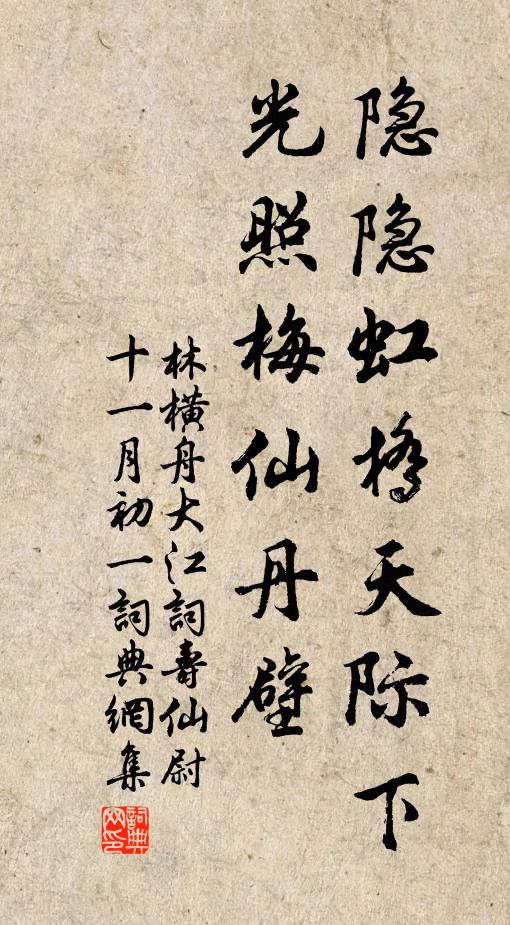 隐隐虹桥天际下
光照梅仙丹壁
林橫舟大江詞壽仙尉
十一月初一詞典網集
詞典网印